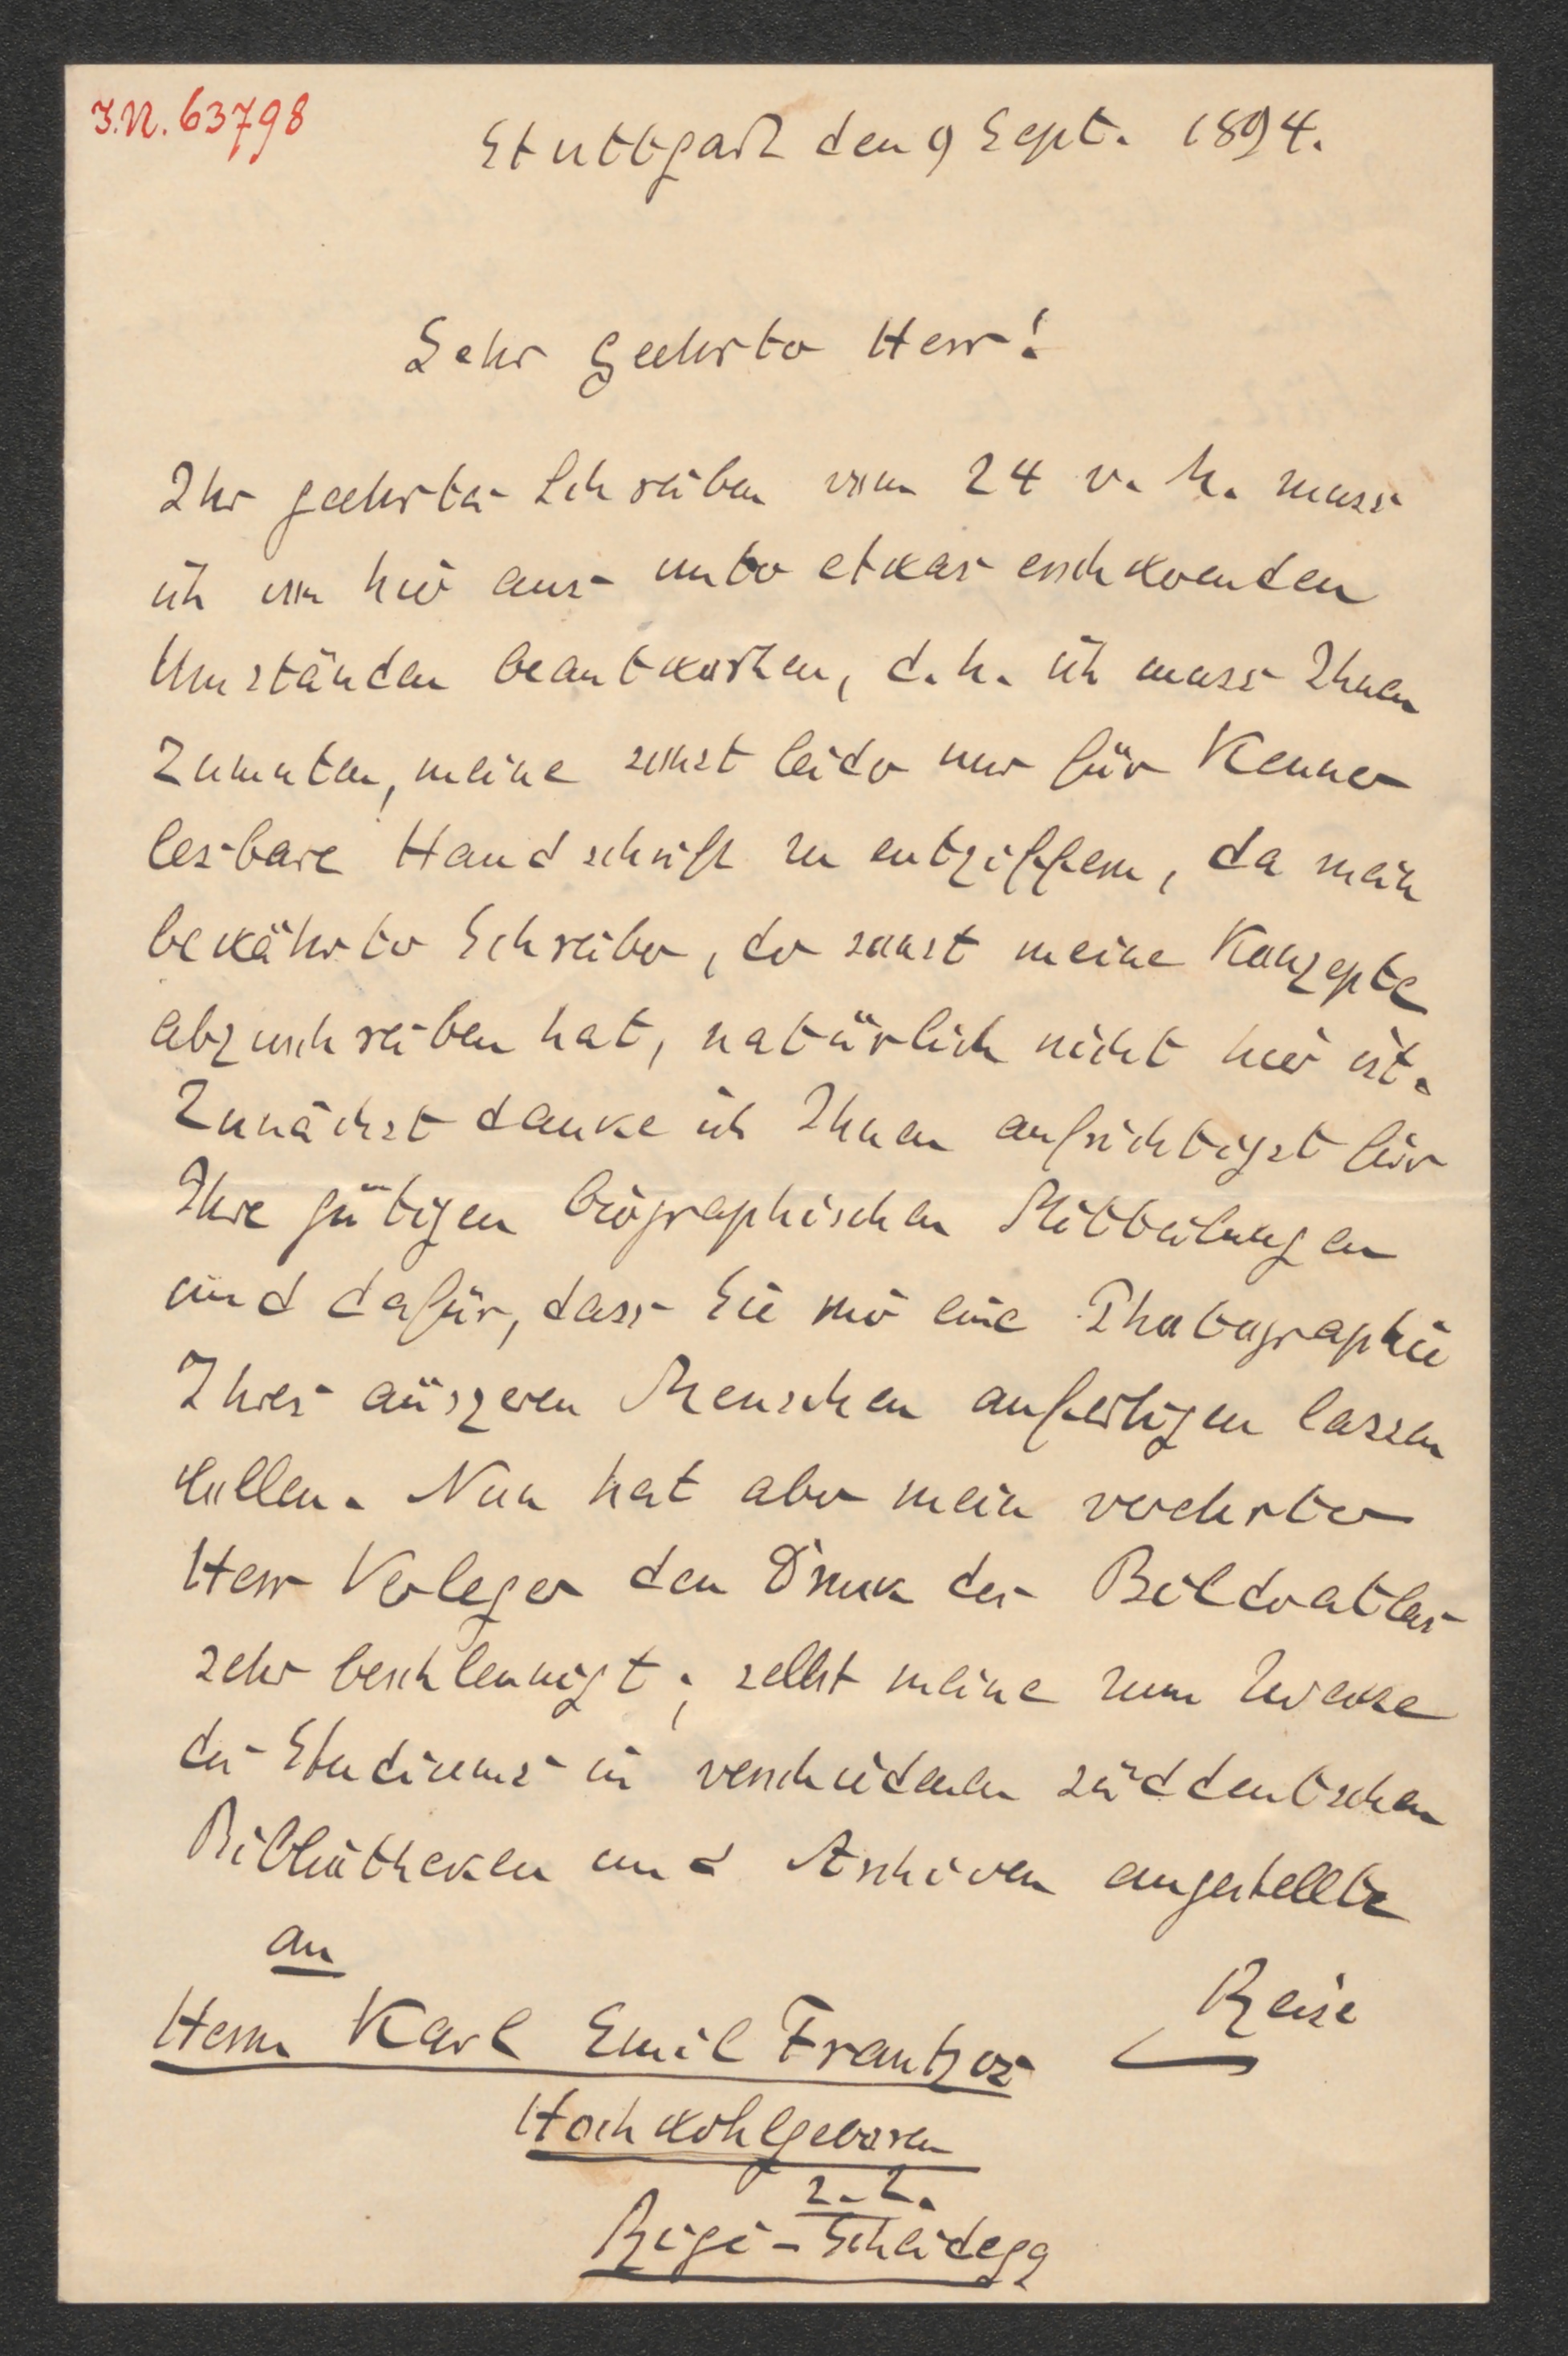 I.N. 63798
Stuttgart den 9 Sept. 1894.
Sehr geehrter Herr!
Ihr geehrtes Schreiben vom 24 v. M. muss
ich von hier aus unter etwas erschwerenden
Umständen beantworten, d. h. ich muss Ihnen
zumuten, meine sonst leider nur für Kenner
lesbare Handschrift zu entziffern, da mein
bewährter Schreiber, der sonst meine Konzepte
abzuschreiben hat, natürlich nicht hier ist.
Zunächst danke ich Ihnen aufrichtigst für
Ihre gütigen biographischen Mitteilungen
und dafür, dass Sie mir eine Photographie
Ihres äusseren Menschen anfertigen lassen
wollen. Nun hat aber mein verehrter
Herr Verleger den Druck des Bilderatlas
sehr beschleunigt; selbst meine zum Zwecke
des Studiums in verschiedenen süddeutschen
Bibliotheken und Archiven angestellte
Reise
an
Herrn Karl Emil Frantzos
Hochwohlgeboren
z. Z.
Rigi-Scheidegg